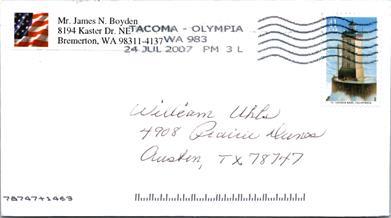 Mr. James N. Boyden
8194 Kaster Dr. NE
Bremerton, WA 98311-4137
TACOMA - OLYMPIA
WA 983
24 JUL 2007 PM 3 L
William Uhls
4908 Prairie Dunes
Austin, TX 78747
78747+1463